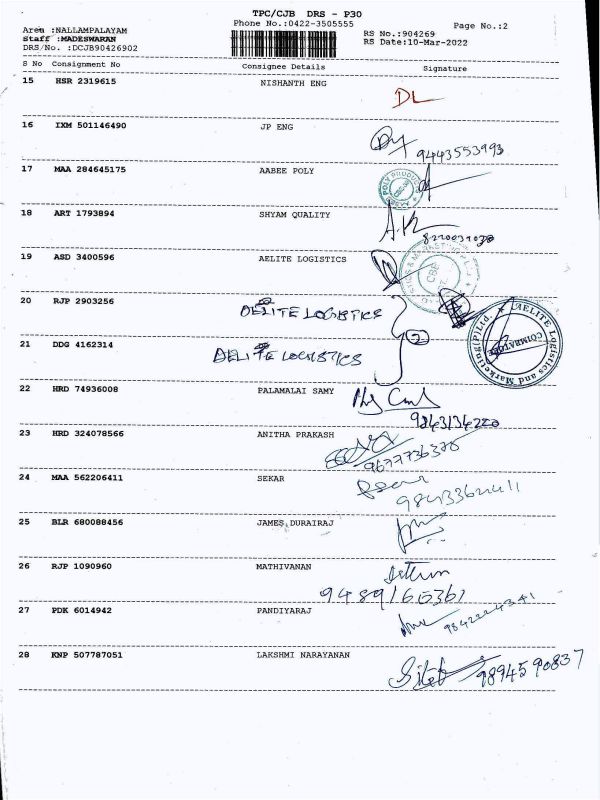 TPC/CJB DRS - P30
Phone No.:0422-3505555
Page No.:2
Area :NALLAMPALAYAM
Staff :MADESWARAN
DRS/No. :DCJB90426902
RS No.:904269
RS Date:10-Mar-2022
S No Consignment No Consignee Details Signature
15 HSR 2319615 NISHANTH ENG
DL
16 IXM 501146490 JP ENG
9443553993
17 MAA 284645175 AABEE POLY
18 ART 1793894 SHYAM QUALITY
A.K
19 ASD 3400596 AELITE LOGISTICS
20 RJP 2903256 AELITE LOGISTICS
2
AELITE Logistics and Marketing (P) Ltd.
COIMBATORE
21 DDG 4162314 AELITE LOGISTICS
22 HRD 74936008 PALAMALAI SAMY
9843134220
23 HRD 324078566 ANITHA PRAKASH
9677736378
24 MAA 562206411 SEKAR
25 BLR 680088456 JAMES DURAIRAJ
26 RJP 1090960 MATHIVANAN
9489165361
27 PDK 6014942 PANDIYARAJ
9842224341
28 KNP 507787051 LAKSHMI NARAYANAN
9894590837